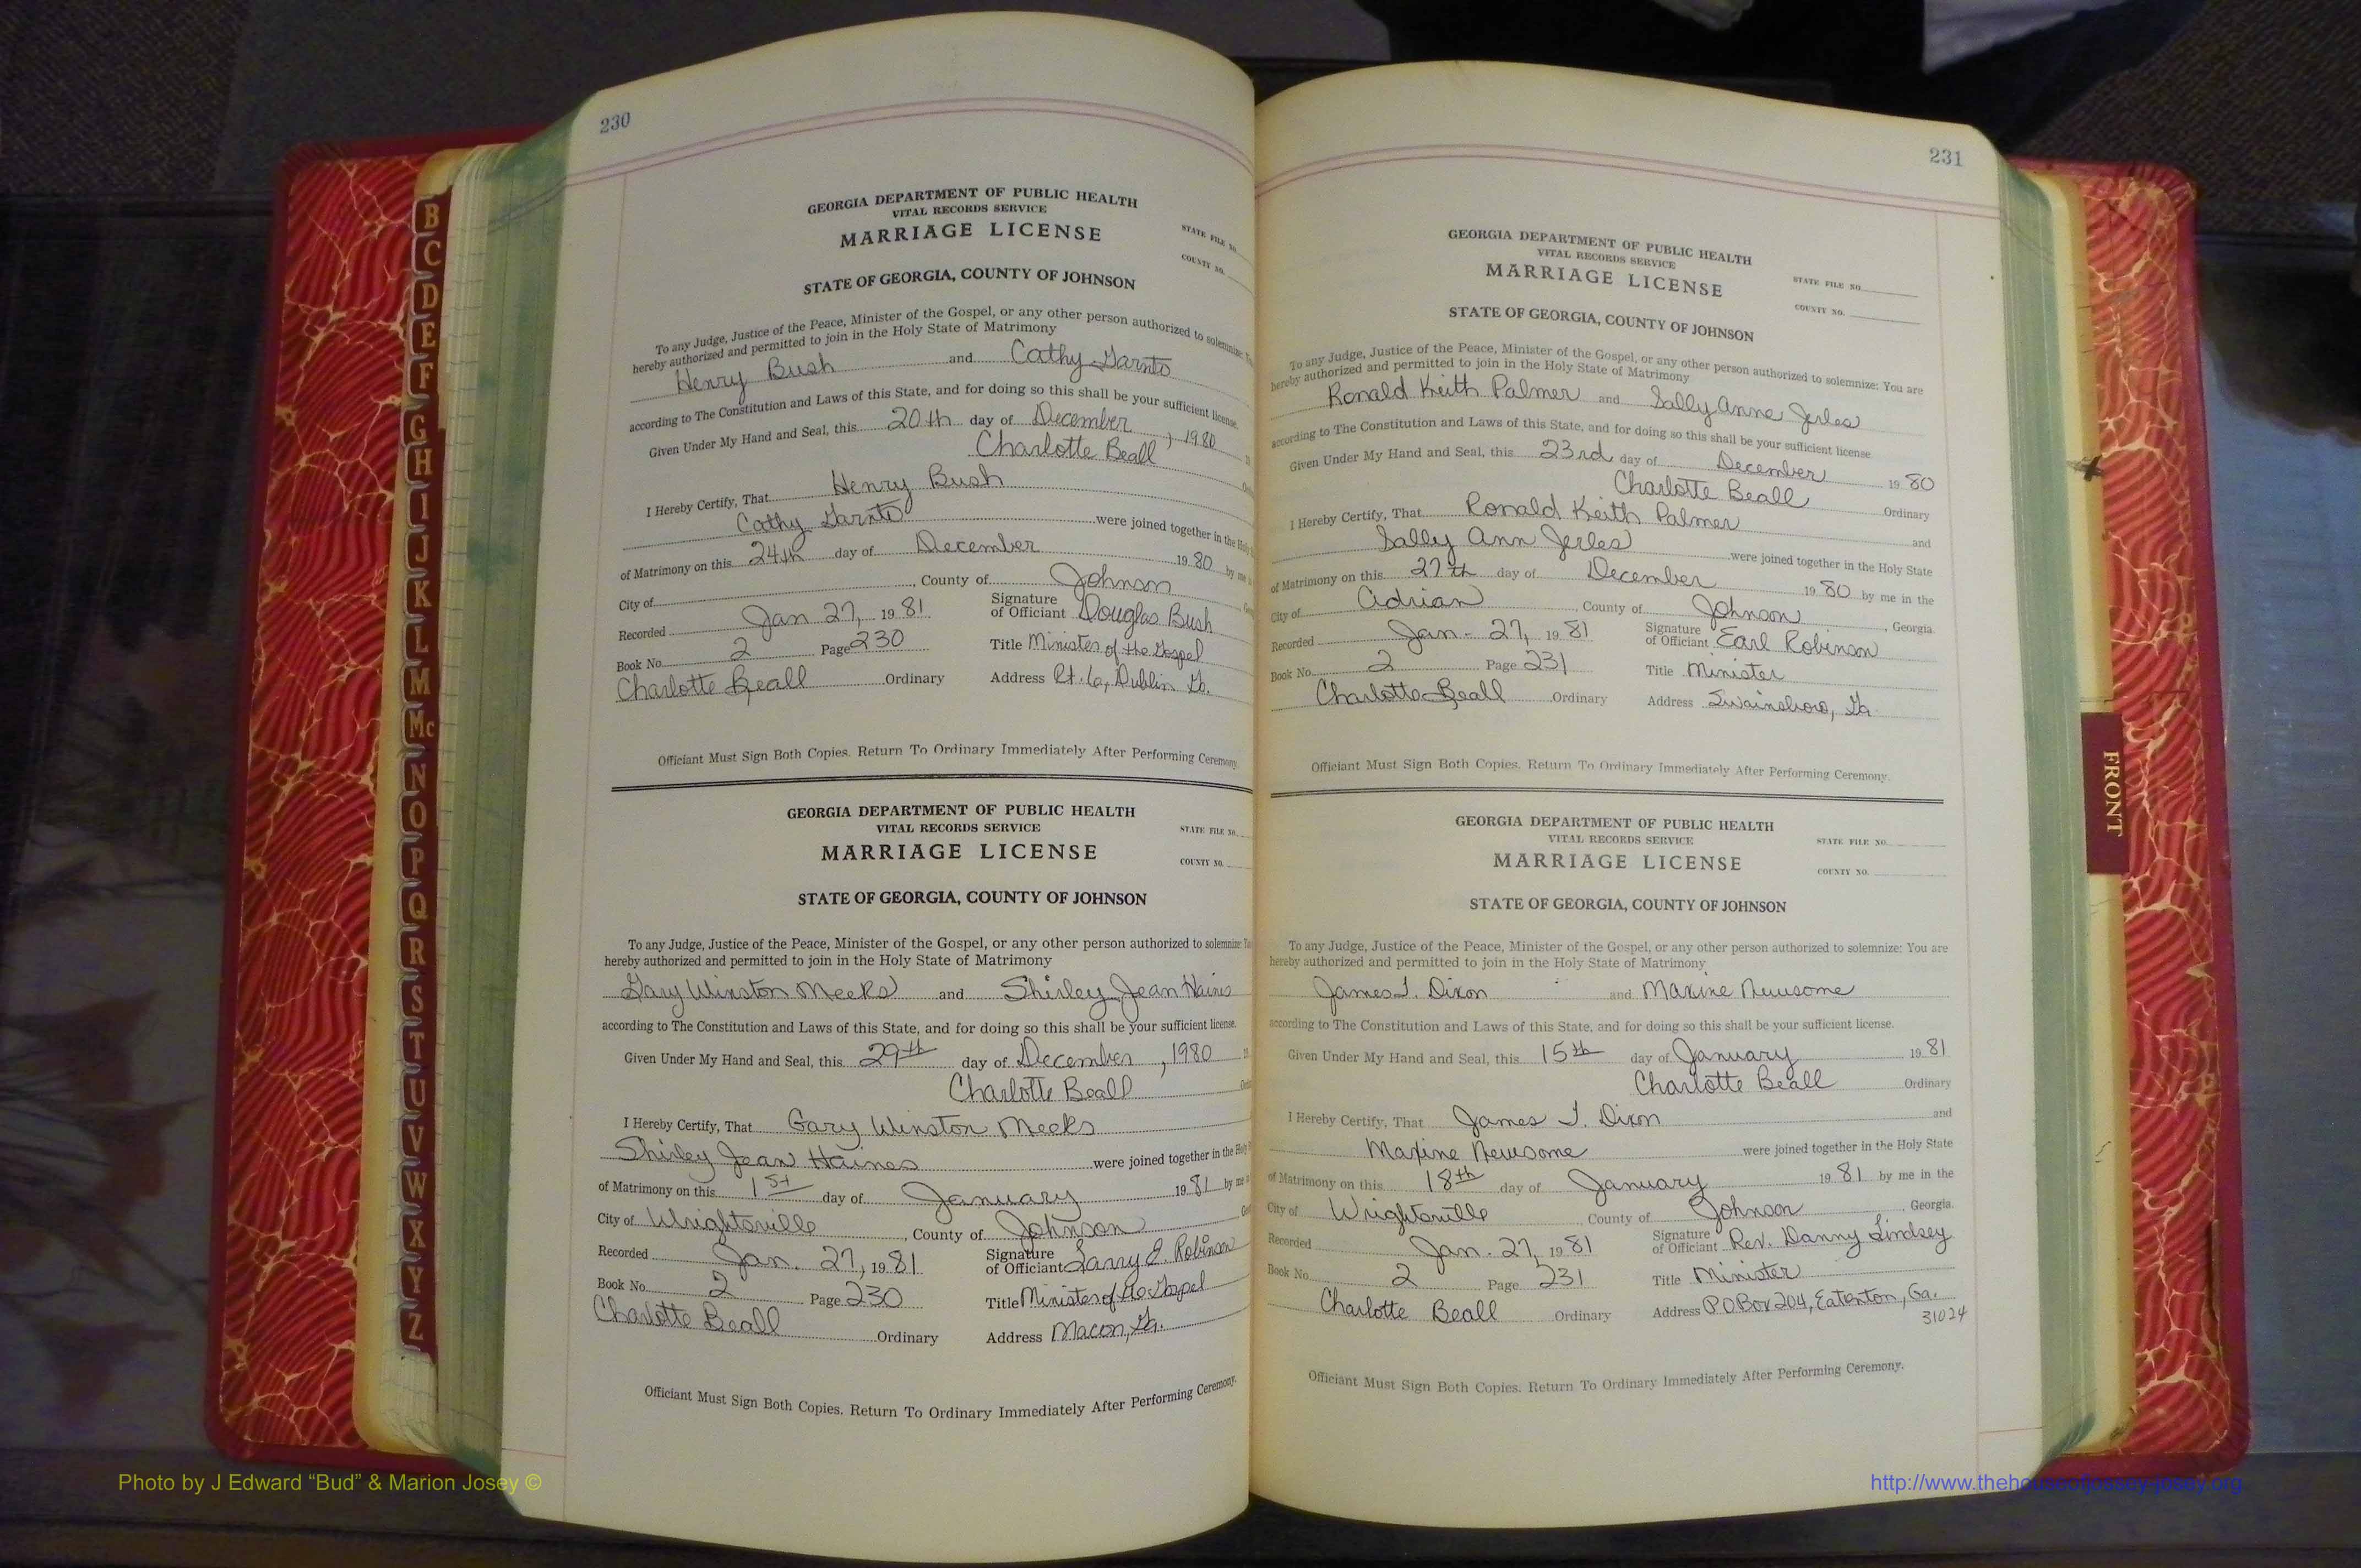 230
GEORGIA DEPARTMENT OF PUBLIC HEALTH
VITAL RECORDS SERVICE
MARRIAGE LICENSE
STATE FILE NO.
COUNTY NO.
STATE OF GEORGIA, COUNTY OF JOHNSON
To any Judge, Justice of the Peace, Minister of the Gospel, or any other person authorized to solemnize:
hereby authorized and permitted to join in the Holy State of Matrimony
Henry Bush and Cathy Garnto
according to The Constitution and Laws of this State, and for doing so this shall be your sufficient license.
Given Under My Hand and Seal, this 20th day of December, 1980
Charlotte Beall
I Hereby Certify, That Henry Bush
Cathy Garnto were joined together in the Holy
of Matrimony on this 24th day of December 1980 by me
City of , County of Johnson
Recorded Jan 27, 1981 Signature of Officiant Douglas Bush
Book No. 2 Page 230 Title Minister of the Gospel
Charlotte Beall Ordinary Address Rt. 6, Dublin Ga.
Officiant Must Sign Both Copies. Return To Ordinary Immediately After Performing Ceremony.
GEORGIA DEPARTMENT OF PUBLIC HEALTH
VITAL RECORDS SERVICE
MARRIAGE LICENSE
STATE FILE NO.
COUNTY NO.
STATE OF GEORGIA, COUNTY OF JOHNSON
To any Judge, Justice of the Peace, Minister of the Gospel, or any other person authorized to solemnize:
hereby authorized and permitted to join in the Holy State of Matrimony
Gary Winston Meeks and Shirley Jean Haines
according to The Constitution and Laws of this State, and for doing so this shall be your sufficient license.
Given Under My Hand and Seal, this 29th day of December, 1980
Charlotte Beall
I Hereby Certify, That Gary Winston Meeks
Shirley Jean Haines were joined together in the Holy
of Matrimony on this 1st day of January 1981 by me
City of Wrightsville, County of Johnson
Recorded Jan. 27, 1981 Signature of Officiant Larry E. Robinson
Book No. 2 Page 230 Title Minister of the Gospel
Charlotte Beall Ordinary Address Macon, Ga.
Officiant Must Sign Both Copies. Return To Ordinary Immediately After Performing Ceremony.
231
GEORGIA DEPARTMENT OF PUBLIC HEALTH
VITAL RECORDS SERVICE
MARRIAGE LICENSE
STATE FILE NO.
COUNTY NO.
STATE OF GEORGIA, COUNTY OF JOHNSON
To any Judge, Justice of the Peace, Minister of the Gospel, or any other person authorized to solemnize: You are
hereby authorized and permitted to join in the Holy State of Matrimony
Ronald Keith Palmer and Sally Anne Jerles
according to The Constitution and Laws of this State, and for doing so this shall be your sufficient license
Given Under My Hand and Seal, this 23rd day of December 1980
Charlotte Beall Ordinary
I Hereby Certify, That Ronald Keith Palmer and
Sally Ann Jerles were joined together in the Holy State
of Matrimony on this 27th day of December 1980 by me in the
City of Adrian, County of Johnson, Georgia.
Recorded Jan- 27, 1981 Signature of Officiant Earl Robinson
Book No. 2 Page 231 Title Minister
Charlotte Beall Ordinary Address Swainsboro, Ga
Officiant Must Sign Both Copies. Return To Ordinary Immediately After Performing Ceremony.
GEORGIA DEPARTMENT OF PUBLIC HEALTH
VITAL RECORDS SERVICE
MARRIAGE LICENSE
STATE FILE NO.
COUNTY NO.
STATE OF GEORGIA, COUNTY OF JOHNSON
To any Judge, Justice of the Peace, Minister of the Gospel, or any other person authorized to solemnize: You are
hereby authorized and permitted to join in the Holy State of Matrimony
James I. Dixon and Maxine Newsome
according to The Constitution and Laws of this State, and for doing so this shall be your sufficient license.
Given Under My Hand and Seal, this 15th day of January 1981
Charlotte Beall Ordinary
I Hereby Certify, That James I. Dixon and
Maxine Newsome were joined together in the Holy State
of Matrimony on this 18th day of January 1981 by me in the
City of Wrightsville, County of Johnson, Georgia.
Recorded Jan. 27, 1981 Signature of Officiant Rev. Danny Lindsey
Book No. 2 Page 231 Title Minister
Charlotte Beall Ordinary Address P.O Box 204, Eatonton, Ga.
31024
Officiant Must Sign Both Copies. Return To Ordinary Immediately After Performing Ceremony.
B
C
D
E
F
G
H
I
J
K
L
M
Mc
N
O
P
Q
R
S
T
U
V
W
X
Y
Z
FRONT
Photo by J Edward “Bud” & Marion Josey ©
http://www.thehouseofjossey-josey.org